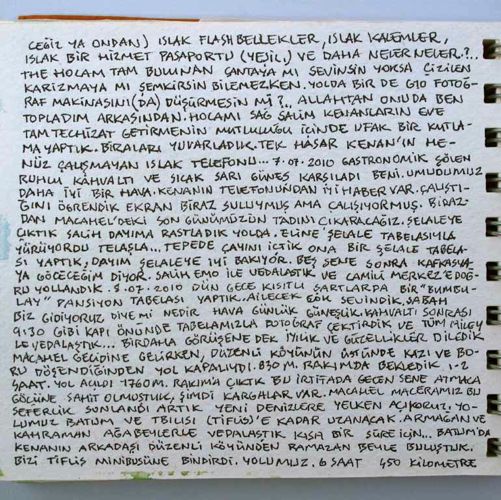 CEĞİZ YA ONDAN) ISLAK FLASHBELLEKLER, ISLAK KALEMLER,
ISLAK BİR HİZMET PASAPORTU (YEŞİL) VE DAHA NELER NELER.?..
THE HOCAM TAM BULUNAN ÇANTAYA MI SEVİNSİN YOKSA ÇİZİLEN
KARİZMAYA MI ŞEMKİRSİN BİLEMEZKEN. YOLDA BİR DE G10 FOTOĞ-
RAF MAKİNASINI(DA) DÜŞÜRMESİN Mİ?.. ALLAHTAN ONUDA BEN
TOPLADIM ARKASINDAN. HOCAMI SAĞ SALİM KENANLARIN EVE
TAM TECHİZAT GETİRMENİN MUTLULUĞU İÇİNDE UFAK BİR KUTLA-
MA YAPTIK. BİRALARI YUVARLADIK. TEK HASAR KENAN'IN HE-
NÜZ ÇALIŞMAYAN ISLAK TELEFONU... 7.07.2010 GASTRONOMİK ŞÖLEN
RUHLU KAHVALTI VE SICAK SARI GÜNEŞ KARŞILADI BENİ. UMUDUMUZ
DAHA İYİ BİR HAVA. KENANIN TELEFONUNDAN İYİ HABER VAR. ÇALIŞTI-
ĞINI ÖĞRENDİK EKRAN BİRAZ SULUYMUŞ AMA ÇALIŞIYORMUŞ. BİRAZ-
DAN MACAHEL'DEKİ SON GÜNÜMÜZÜN TADINI ÇIKARACAĞIZ. ŞELALEYE
ÇIKTIK SALİH DAYIMA RASTLADIK YOLDA. ELİNE ŞELALE TABELASIYLA
YÜRÜYORDU TELAŞLA... TEPEDE ÇAYINI İÇTİK ONA BİR ŞELALE TABELA-
SI YAPTIK, DAYIM ŞELALEYE İYİ BAKIYOR. BEŞ SENE SONRA KAFKASYA-
YA GÖÇECEĞİM DİYOR. SALİH EMO İLE VEDALAŞTIK VE CAMİLİ MERKEZ'E DOĞ-
RU YOLLANDIK. 8.07.2010 DÜN GECE KISITLI ŞARTLARDA BİR "BUMBU-
LAY" PANSİYON TABELASI YAPTIK. AİLECEK ÇOK SEVİNDİK. SABAH
BİZ GİDİYORUZ DİYE Mİ NEDİR HAVA GÜNLÜK GÜNEŞLİK. KAHVALTI SONRASI
9:30 GİBİ KAPI ÖNÜNDE TABELAMIZLA FOTOĞRAF ÇEKTİRDİK VE TÜM AİLEY
LE VEDALAŞTIK... BİRDAHA GÖRÜŞENE DEK İYİLİK VE GÜZELLİKLER DİLEDİK
MACAHEL GEÇİDİNE GELİRKEN, DÜZENLİ KÖYÜNÜN ÜSTÜNDE KAZI VE BO-
RU DÖŞENDİĞİNDEN YOL KAPALIYDI. 830 M. RAKIMDA BEKLEDİK. 1-2
SAAT. YOL AÇILDI 1760 M. RAKIMA ÇIKTIK BU İRTİFADA GEÇEN SENE ATMACA
GÖÇÜNE ŞAHİT OLMUŞTUK, ŞİMDİ KARGALAR VAR. MACAHEL MACERAMIZ BU
SEFERLİK SONLANDI ARTIK YENİ DENİZLERE YELKEN AÇIYORUZ. YO-
LUMUZ BATUM VE TBILISI (TİFLİS)'E KADAR UZANACAK. ARMAĞAN VE
KAHRAMAN AĞABEYLERLE VEDALAŞTIK KISA BİR SÜRE İÇİN... BATUM'DA
KENANIN ARKADAŞI DÜZENLİ KÖYÜNDEN RAMAZAN BEYLE BULUŞTUK.
BİZİ TİFLİS MİNİBÜSÜNE BİNDİRDİ. YOLUMUZ. 6 SAAT 450 KİLOMETRE